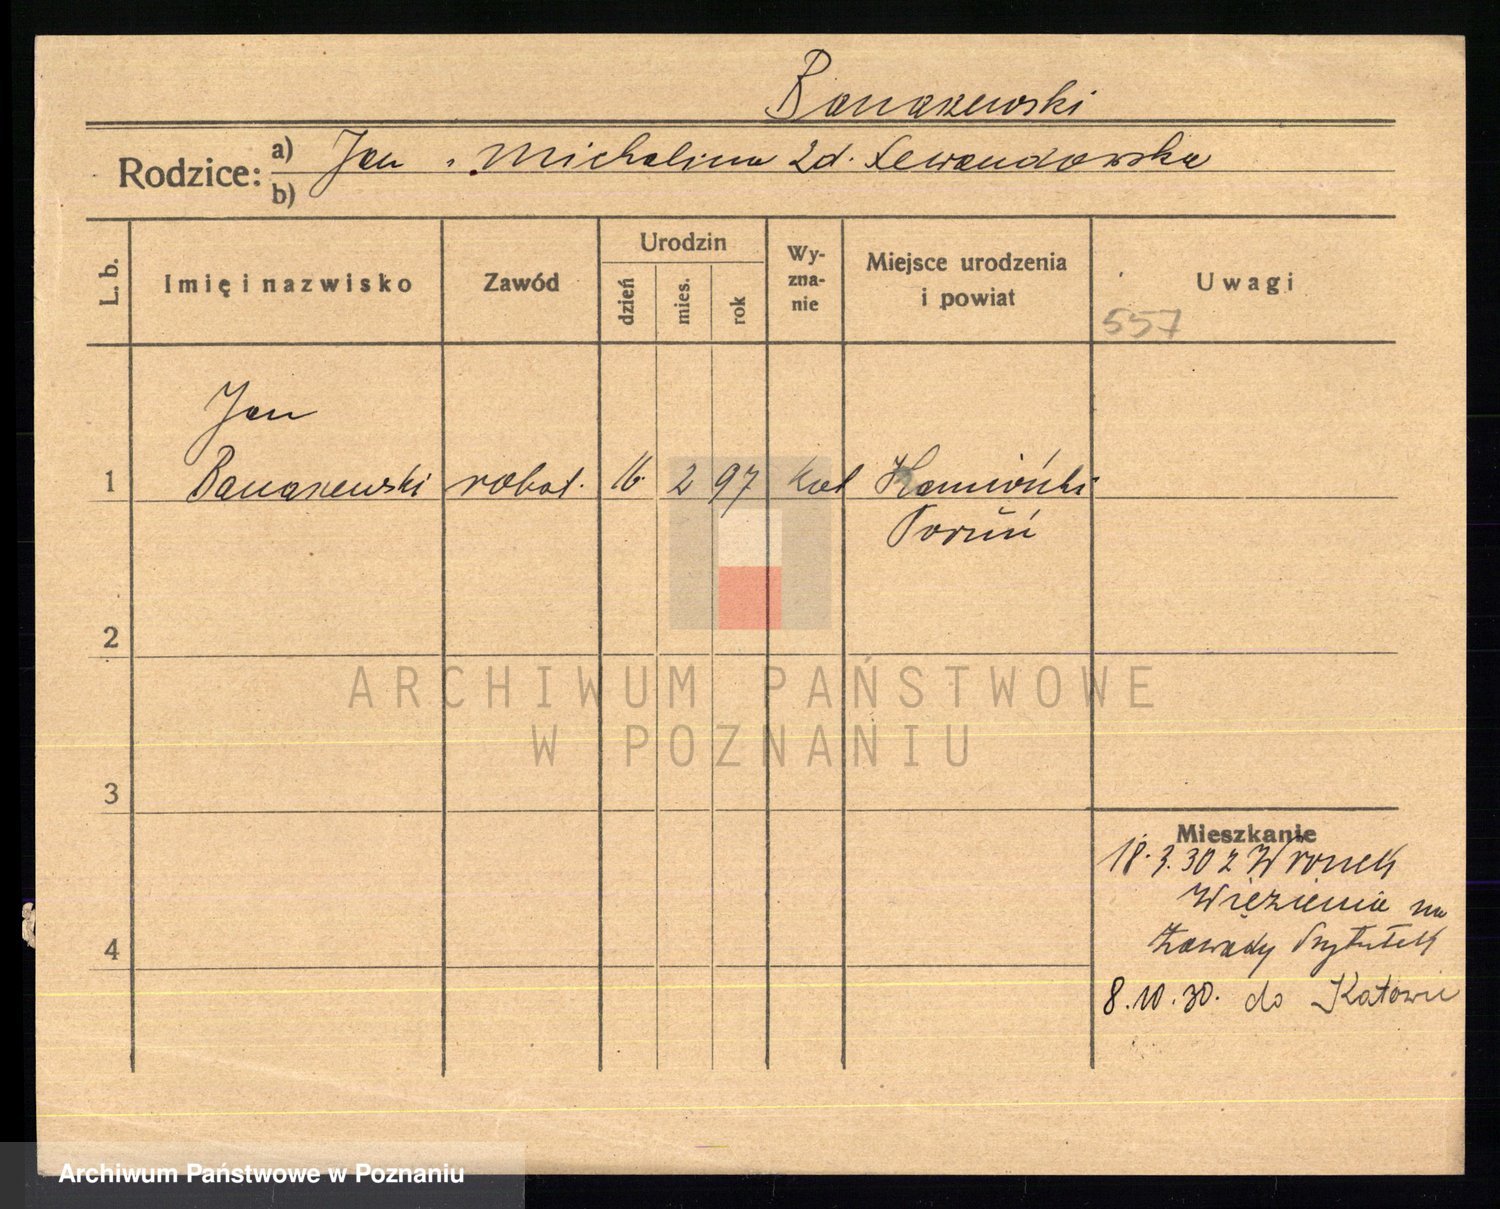 Banaszewski
Rodzice: a) Jan i Michalina zd. Lewandowska
b)
L. b.
Imię i nazwisko
Zawód
Urodzin
dzień
mies.
rok
Wy-
zna-
nie
Miejsce urodzenia
i powiat
Uwagi
557
Jan
1 Banaszewski robot. 16. 2 97 kat
Toruń
2
ARCHIWUM PAŃSTWOWE
W POZNANIU
3
Mieszkanie
18.3.30 z Wronek
Więzienia na
Zawady Przytułek
4
8.10.30. do Katowic
Archiwum Państwowe w Poznaniu